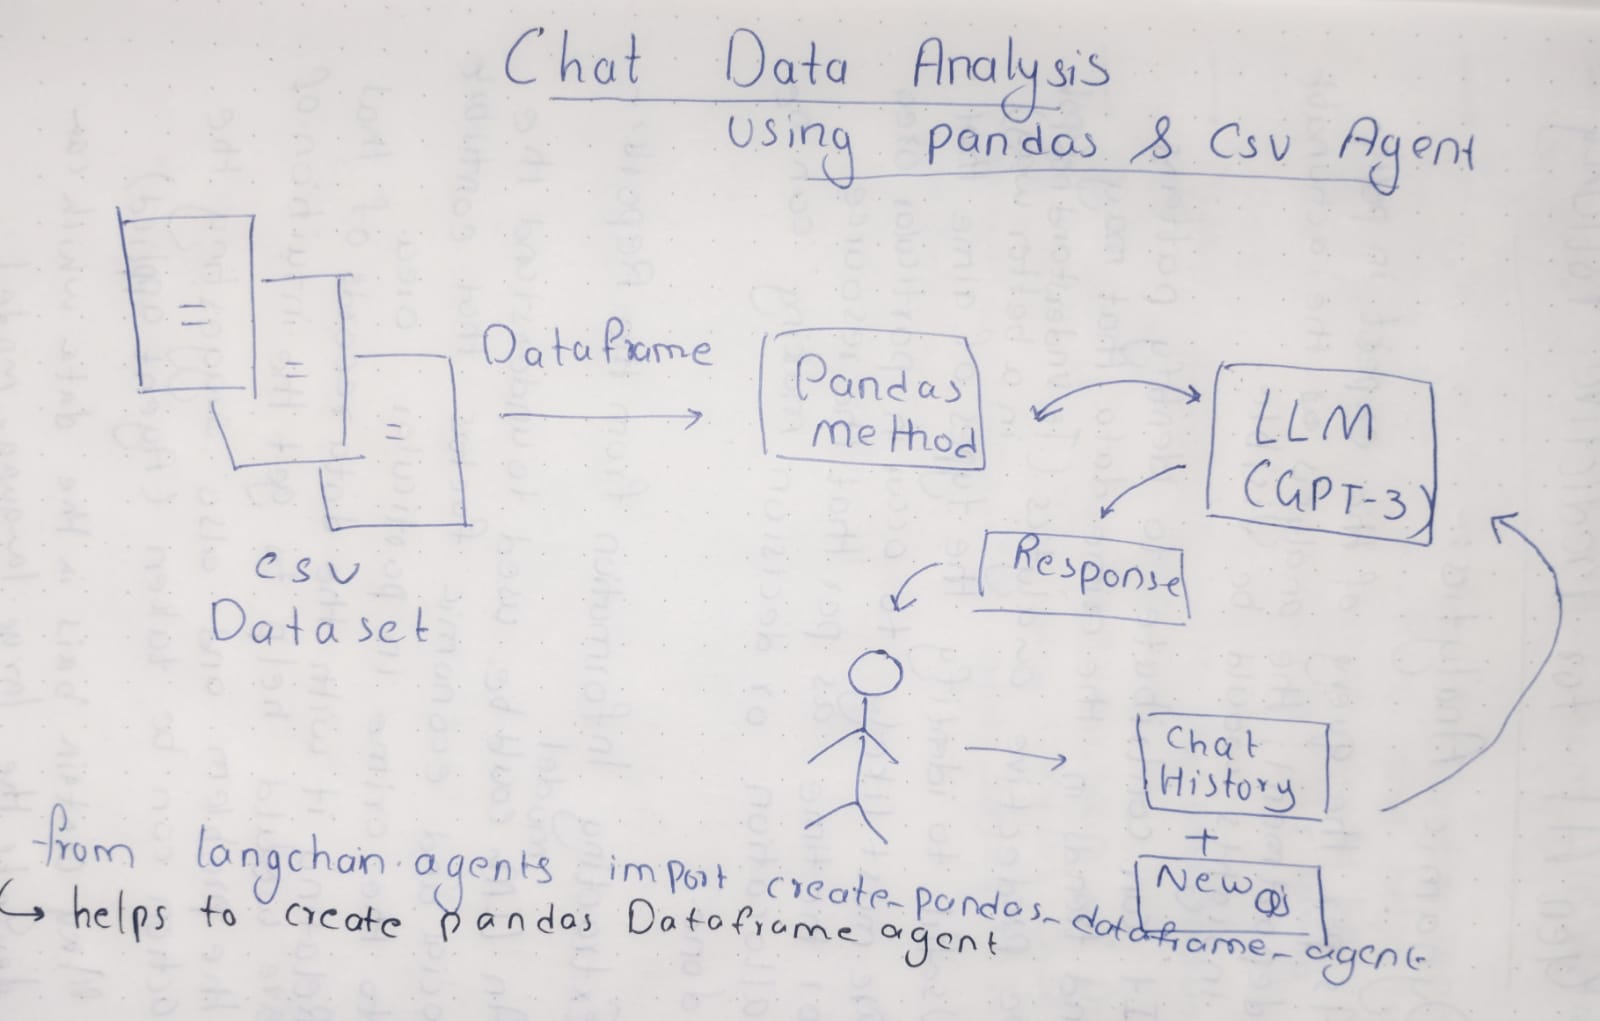 Chat Data Analysis
using pandas & Csv Agent
Dataframe
Pandas
method
LLM
(GPT-3)
Response
csv
Dataset
Chat
History
+
New Qs
from langchain.agents import create_pandas_dataframe_agent
↳ helps to create pandas Dataframe agent